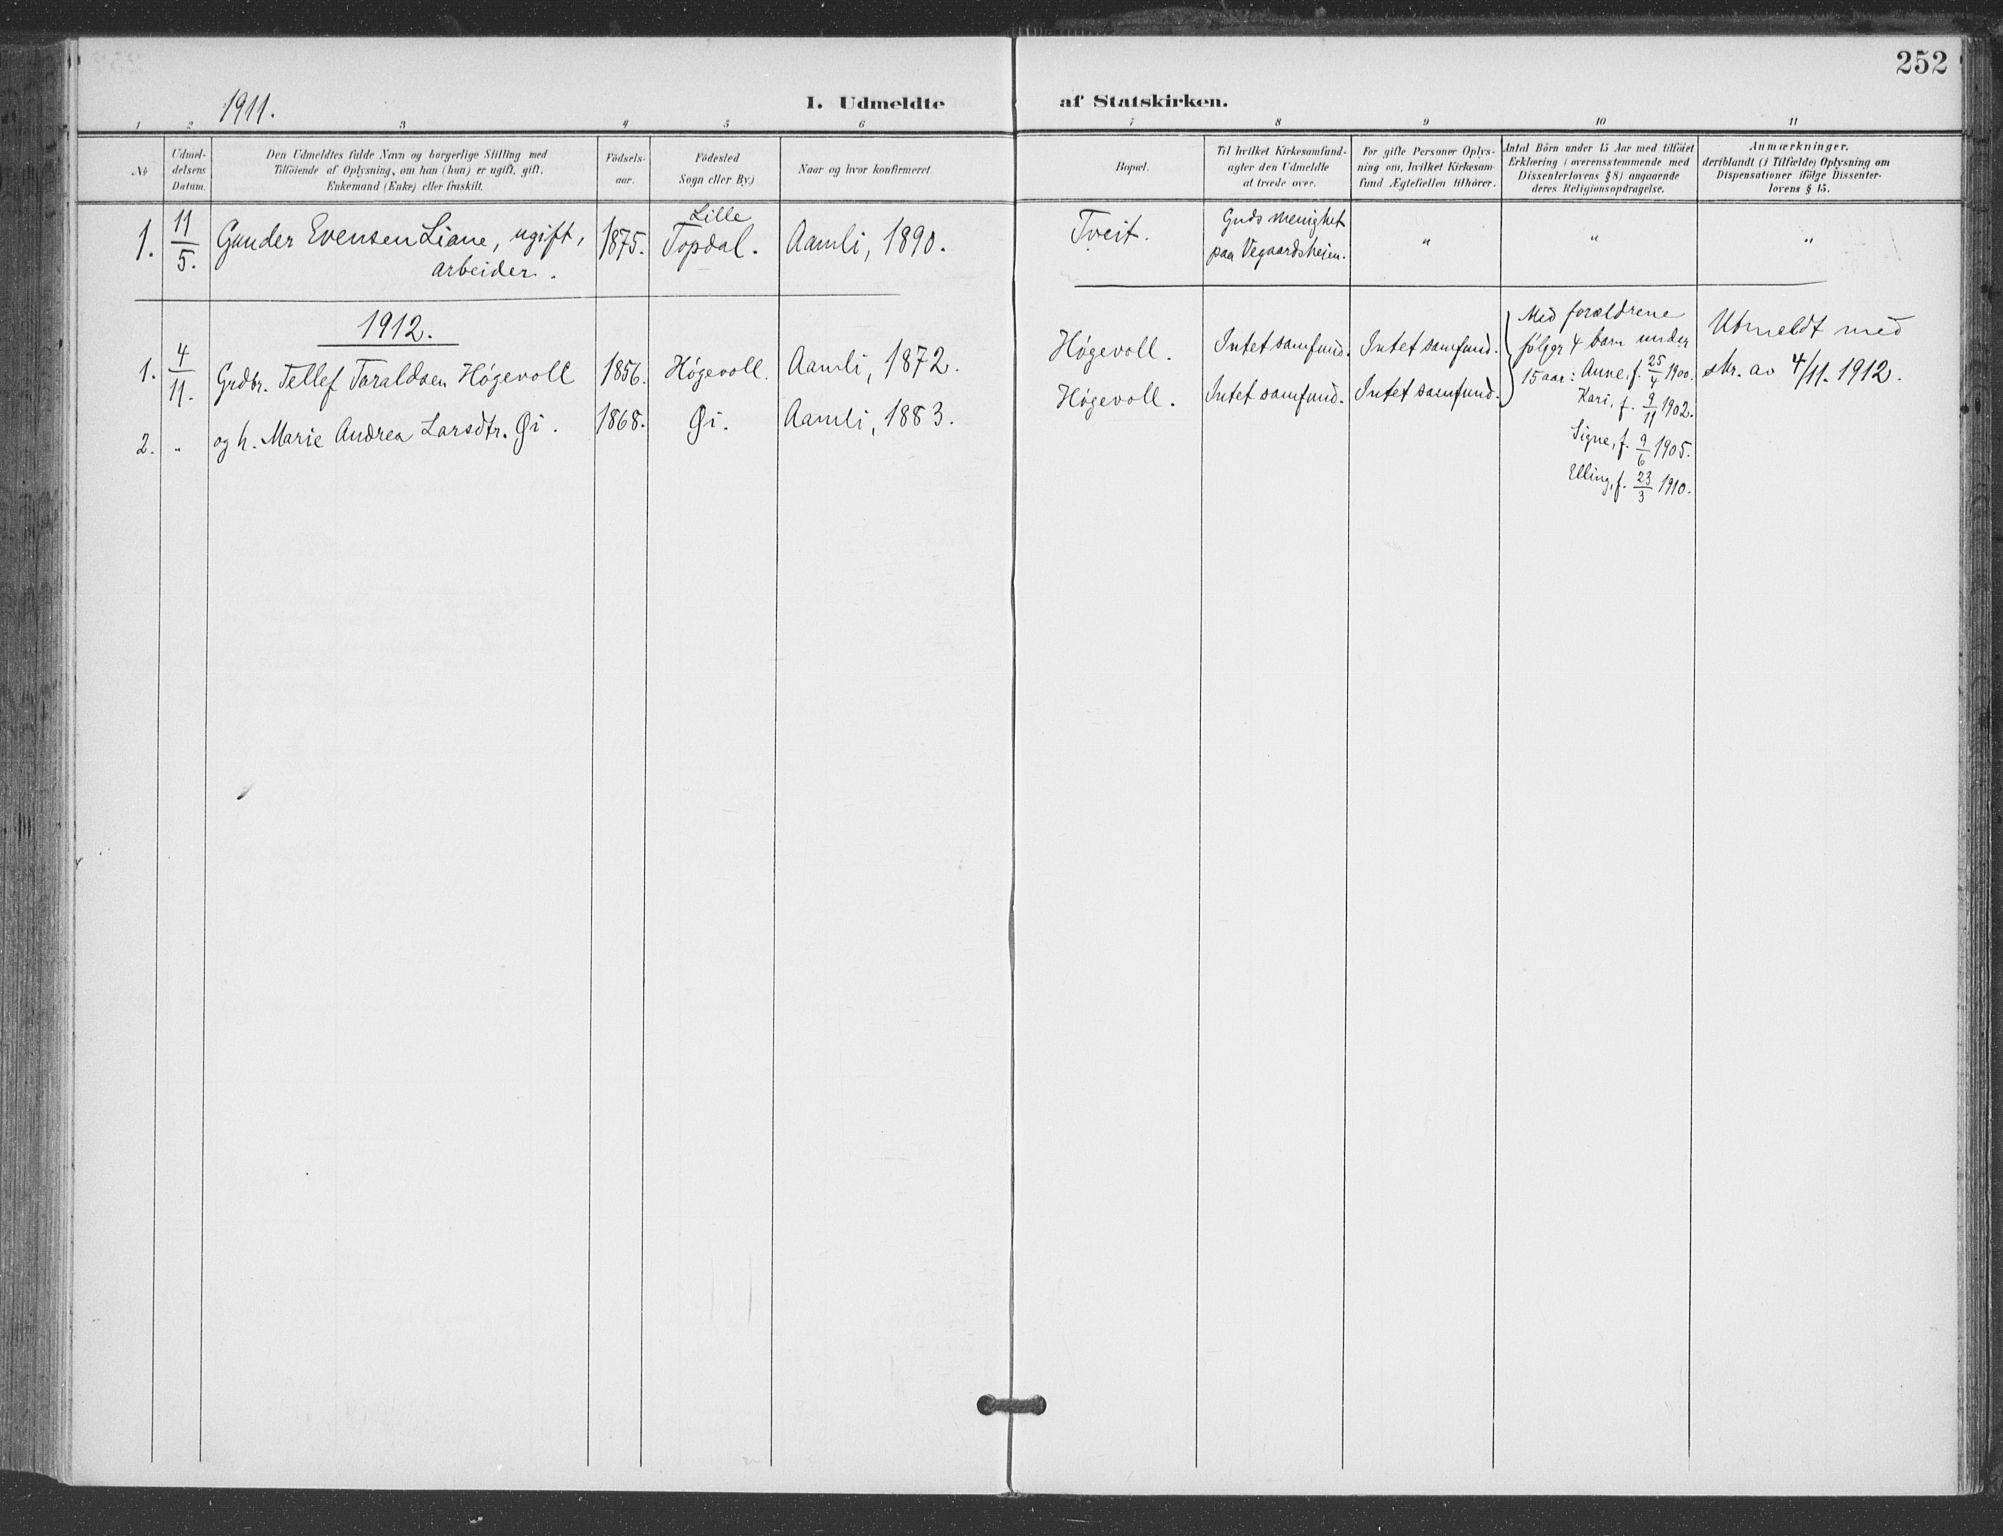 252
1911.
I. Udmeldte af Statskirken.
1 2 3 4 5 6 7 8 9 10 11
№
Udmel-
delsens
Datum.
Den Udmeldtes fulde Navn og borgerlige Stilling med
Tilföiende af Oplysning, om han (hun) er ugift, gift,
Enkemand (Enke) eller fraskilt.
Födsels-
aar.
Födested
Sogn eller By.)
Naar og hvor konfirmeret.
Bopæl.
Til hvilket Kirkesamfund-
agter den Udmeldte
at træde over.
For gifte Personer Oplys-
ning om, hvilket Kirkesam-
fund Ægtefællen tilhörer.
Antal Börn under 15 Aar med tilföiet
Erklæring (overensstemmende med
Dissenterlovens § 8) angaaende
deres Religionsopdragelse.
Anmærkninger.
deriblandt (i Tilfælde) Oplysning om
Dispensationer ifölge Dissenter-
lovens § 15.
1.
11/5.
Gunder Evensen Liane, ugift,
arbeider.
1875.
Lille
Topdal.
Aamli, 1890.
Tveit.
Guds menighet
paa Vegaardsheien.
"
"
"
1912.
1.
4/11.
Grdbr. Tellef Taraldsen Høgevoll
1856.
Høgevoll.
Aamli, 1872.
Høgevoll.
Intet samfund.
Intet samfund.
Med forældrene
følger 4 barn under
15 aar: Anne, f. 25/4 1900.
Kari, f. 9/11 1902.
Signe, f. 9/6 1905.
Elling, f. 23/3 1910.
Utmeldt med
skr. av 4/11. 1912.
2.
"
og h. Marie Andrea Larsdtr. Øi.
1868.
Øi.
Aamli, 1883.
Høgevoll.
Intet samfund.
Intet samfund.